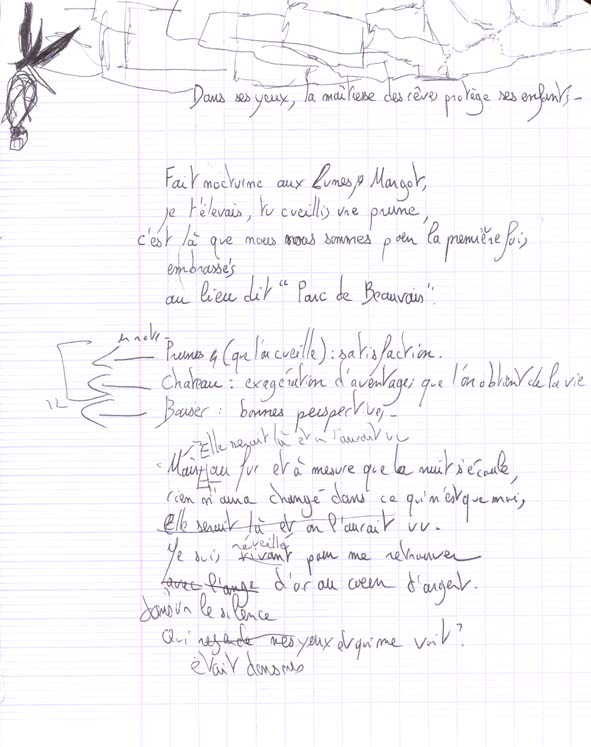 Dans ses yeux, la maîtresse des rêves protège ses enfants.
Fait nocturne aux lunes, Margot,
je t'élevais, tu cueillis une prune,
c'est là que nous nous sommes pour la première fois,
embrassés
au lieu dit "Parc de Beauvais".
en note
Prunes (que l'on cueille) : satisfaction.
Chateau : exagération d'aventages que l'on obtient de la vie
12
Baiser : bonnes perspectives
Elle serait là et on l'aurait vu
Mais, au fur et à mesure que la nuit s'écoule,
rien n'aura changé dans ce qui n'est que moi,
Elle serait là et on l'aurait vu.
réveillé
Je suis vivant pour me retrouver
avec l'ange d'or au coeur d'argent.
le silence
Qui regarde mes yeux et qui me voit?
était dans mes